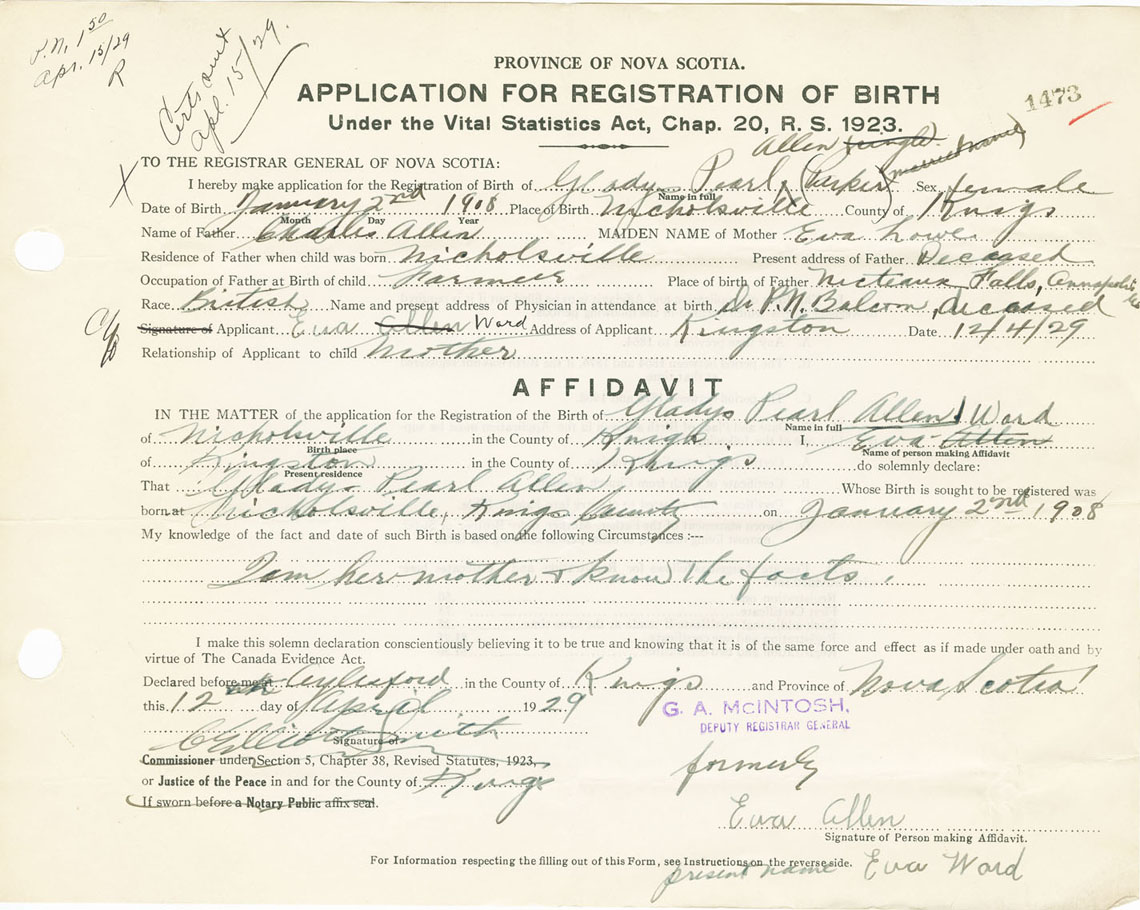 P.N. 1 50
Apr. 15/29
R
Certs out
Apl. 15/29.
PROVINCE OF NOVA SCOTIA.
APPLICATION FOR REGISTRATION OF BIRTH
1473
Under the Vital Statistics Act, Chap. 20, R. S. 1923.
Allen (single)
(married name)
X
TO THE REGISTRAR GENERAL OF NOVA SCOTIA:
I hereby make application for the Registration of Birth of Gladys Pearl (Parker) Sex female
Name in full
Date of Birth January 2nd 1908 Place of Birth Nicholsville County of Kings
Month Day Year
Name of Father Charles Allen MAIDEN NAME of Mother Eva Lowe
Residence of Father when child was born Nicholsville Present address of Father Deceased
Occupation of Father at Birth of child Farmer Place of birth of Father Nictaux Falls, Annapolis Co
Race British Name and present address of Physician in attendance at birth Dr P.N. Balcom, deceased
Signature of Applicant Eva Allen Ward Address of Applicant Kingston Date 12/4/29
Relationship of Applicant to child Mother
AFFIDAVIT
IN THE MATTER of the application for the Registration of the Birth of Gladys Pearl Allen Ward
Name in full
of Nicholsville in the County of Kings I, Eva Allen
Birth place Name of person making Affidavit
of Kingston in the County of Kings do solemnly declare:
Present residence
That Gladys Pearl Allen Whose Birth is sought to be registered was
born at Nicholsville, Kings County on January 2nd 1908
My knowledge of the fact and date of such Birth is based on the following Circumstances :---
I am her mother & know the facts.
I make this solemn declaration conscientiously believing it to be true and knowing that it is of the same force and effect as if made under oath and by
virtue of The Canada Evidence Act.
Declared before me at Aylesford in the County of Kings and Province of Nova Scotia
this 12th day of April 1929
G. A. McINTOSH,
DEPUTY REGISTRAR GENERAL
Smith
Signature of
Commissioner under Section 5, Chapter 38, Revised Statutes, 1923,
formerly
or Justice of the Peace in and for the County of Kings
If sworn before a Notary Public affix seal.
Eva Allen
Signature of Person making Affidavit.
For Information respecting the filling out of this Form, see Instructions on the reverse side.
present name Eva Ward